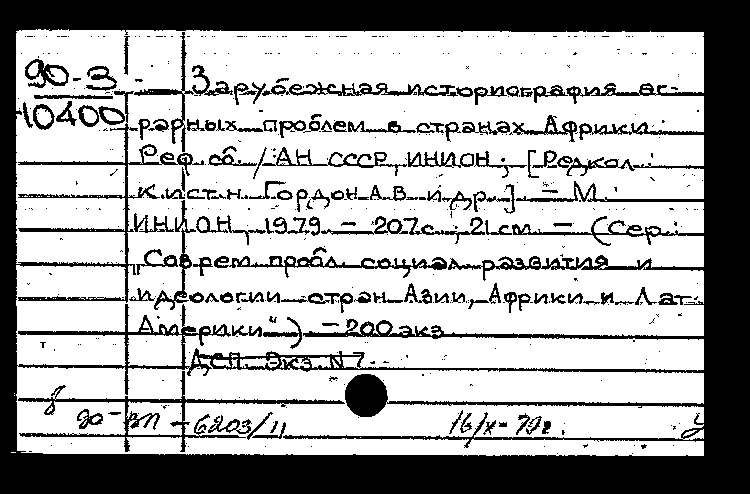 90-3 Зарубежная историография аг-
10400 рарных проблем в странах Африки:
Реф. сб. / АН СССР, ИНИОН; [Редкол.:
к.ист.н. Гордон А.В. и др.]. – М.:
ИНИОН, 1979. – 207 с.; 21 см. – (Сер.:
"Соврем. пробл. социал. развития и
идеологии стран Азии, Африки и Лат.
Америки"). – 200 экз.
ДСП. Экз. N 7.
до-ВП – 6203/11 16/X-79г. У